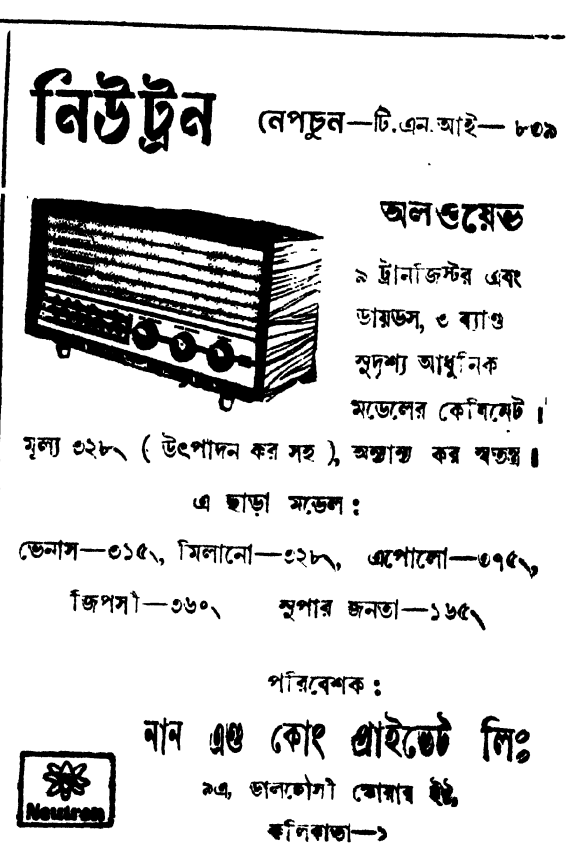 নিউট্রন
নেপচুন—টি.এন.আই—৮৩৯
অলওয়েভ
৯ ট্রানজিস্টর এবং
ডায়ডস, ৩ ব্যাণ্ড
সুদৃশ্য আধুনিক
মডেলের কেবিনেট।
মূল্য ৩২৮৲ (উৎপাদন কর সহ), অন্যান্য কর স্বতন্ত্র।
এ ছাড়া মডেল :
ভেনাস—৩১৫৲, মিলানো—৩২৮৲, এপোলো—৩৭৫৲,
জিপসী—৩৬০৲ সুপার জনতা—১৬৫৲
পরিবেশক :
নান এণ্ড কোং প্রাইভেট লিঃ
৯এ, ডালহৌসী স্কোয়ার ইষ্ট,
কলিকাতা—১
Neutron